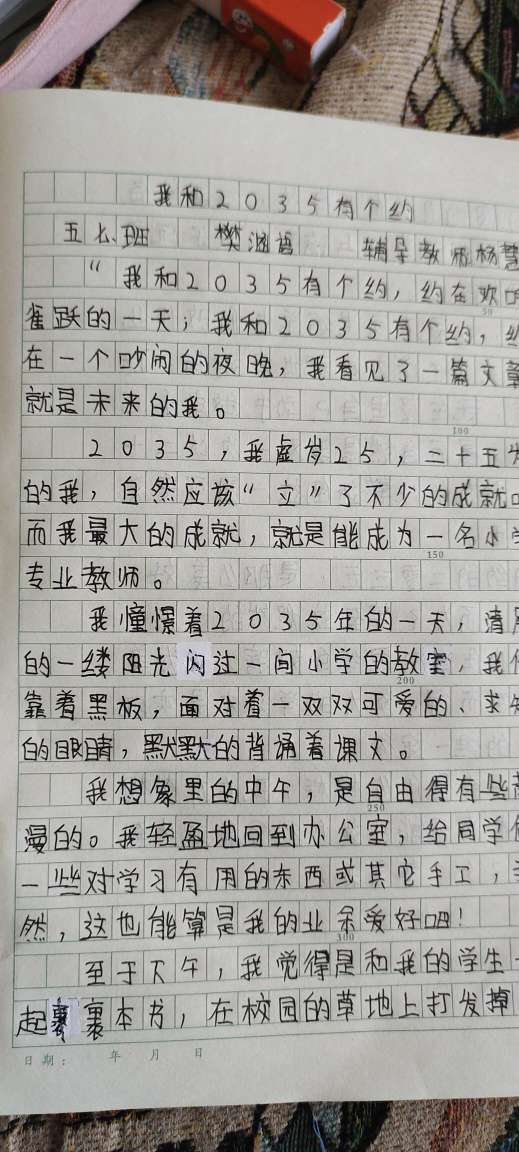 我和2035有个约
五 班 樊涵 辅导教师杨慧
“我和2035有个约，约在欢
雀跃的一天；我和2035有个约，约
在一个吵闹的夜晚，我看见了一篇文章
就是未来的我。
2035，我虚岁25，二十五岁
的我，自然应该“立”了不少的成就
而我最大的成就，就是能成为一名小学
专业教师。
我憧憬着2035年的一天，清
的一缕阳光闪过一间小学的教室，我
靠着黑板，面对着一双双可爱的、求知
的眼睛，默默的背诵着课文。
我想象里的中午，是自由得有些
漫的。我轻盈地回到办公室，给同学
一些对学习有用的东西或其它手工，
然，这也能算是我的业余爱好吧！
至于下午，我觉得是和我的学生一
起裹裹本书，在校园的草地上打发掉
50
100
150
200
250
300
日期： 年 月 日